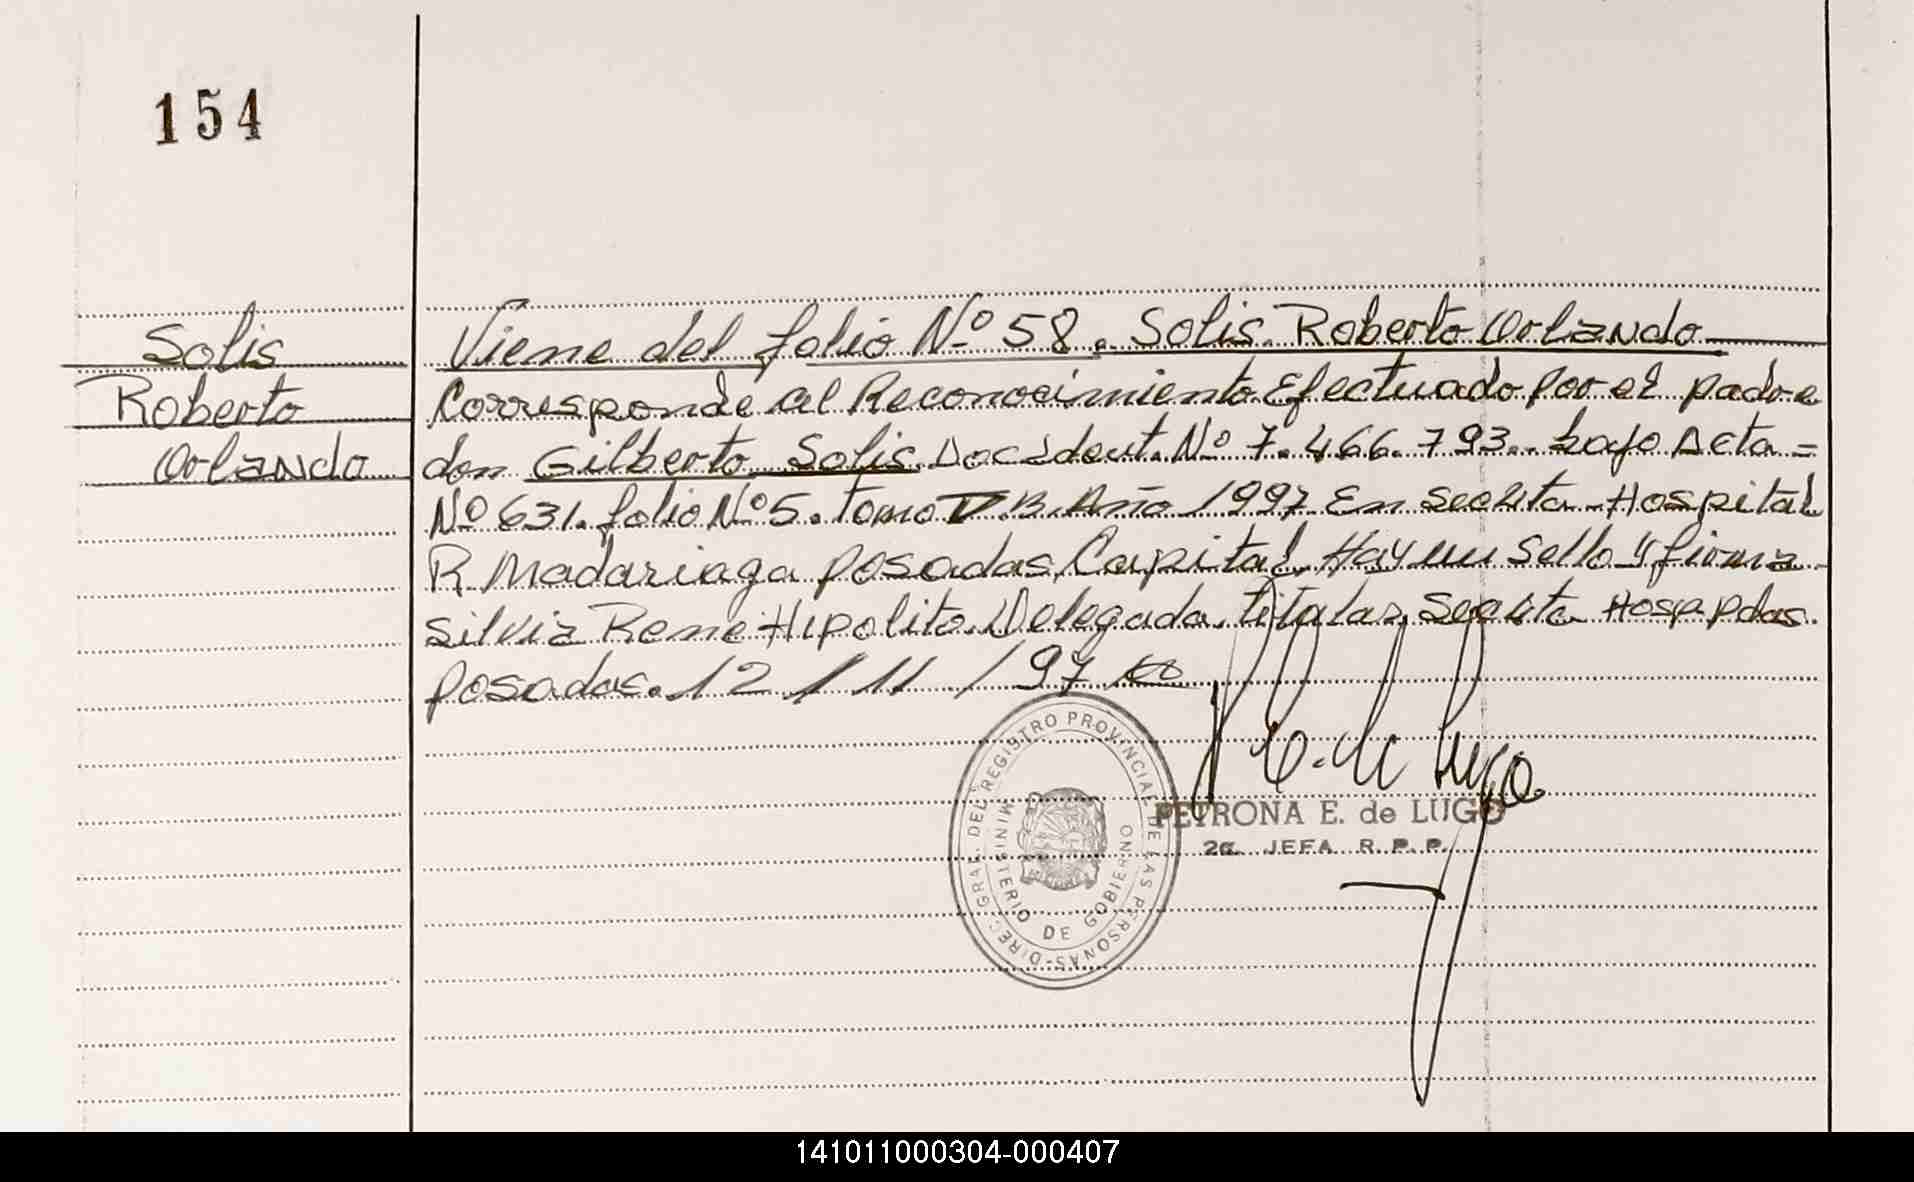 154
Solis
Roberto
Orlando
Viene del folio Nº 58. Solis Roberto Orlando
Corresponde al Reconocimiento Efectuado por el padre
don Gilberto Solis Doc Ident. Nº 7.466.793. bajo Acta =
Nº 631. folio Nº 5. tomo B. Año 1997 En Seccita Hospital
R Madariaga posadas Capital. Hay un Sello y firma
Silvia Rene Hipolito. Delegada. Titular, Seccita Hosp. pdas.
posadas. 12 / 11 / 97
DIREC. GRAL. DEL REGISTRO PROVINCIAL DE LAS PERSONAS
MINISTERIO DE GOBIERNO
PETRONA E. de LUGO
2a. JEFA R. P. P.
141011000304-000407